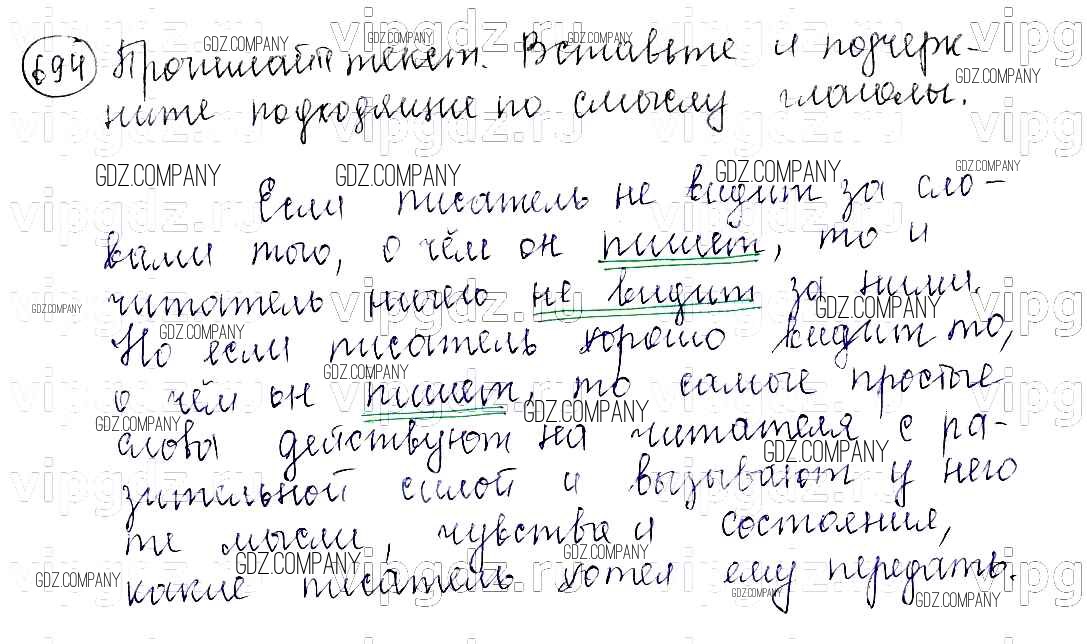 694 Прочитайте текст. Вставьте и подчерк-
ните подходящие по смыслу глаголы.
Если писатель не видит за сло-
вами того, о чём он пишет, то и
читатель ничего не видит за ними.
Но если писатель хорошо видит то,
о чём он пишет, то самые простые
слова действуют на читателя с ра-
зительной силой и вызывают у него
те мысли, чувства и состояния,
какие писатель хотел ему передать.